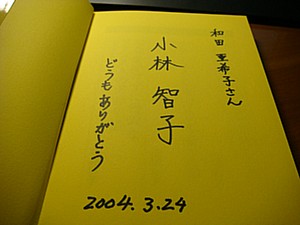 和田 亜希子さん
小林 智子
どうもありがとう
2004.3.24